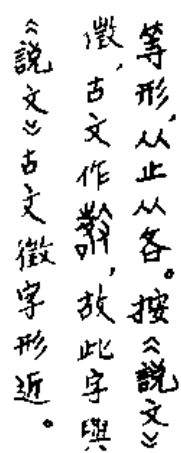 等形，从止从各。按《説文》
徵，古文作𢾷，故此字與
《説文》古文徵字形近。